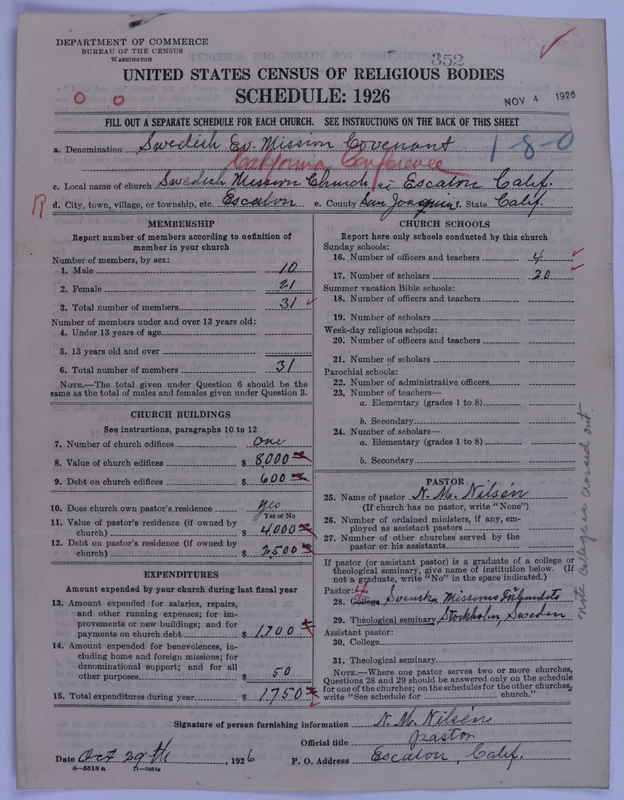 DEPARTMENT OF COMMERCE
BUREAU OF THE CENSUS
WASHINGTON
352
UNITED STATES CENSUS OF RELIGIOUS BODIES
SCHEDULE: 1926
NOV 4 1926
FILL OUT A SEPARATE SCHEDULE FOR EACH CHURCH. SEE INSTRUCTIONS ON THE BACK OF THIS SHEET
a. Denomination Swedish Ev. Mission Covenant 1-8-0
California Conference
c. Local name of church Swedish Mission Church in Escalon Calif.
d. City, town, village, or township, etc. Escalon e. County San Joaquin f. State Calif.
MEMBERSHIP
Report number of members according to definition of
member in your church
Number of members, by sex:
1. Male 10
2. Female 21
3. Total number of members 31
Number of members under and over 13 years old:
4. Under 13 years of age
5. 13 years old and over
6. Total number of members 31
NOTE.—The total given under Question 6 should be the
same as the total of males and females given under Question 3.
CHURCH BUILDINGS
See instructions, paragraphs 10 to 12
7. Number of church edifices one
8. Value of church edifices $ 8000
9. Debt on church edifices $ 600
10. Does church own pastor's residence yes
Yes or No
11. Value of pastor's residence (if owned by
church) $ 4,000
12. Debt on pastor's residence (if owned by
church) $ 2,500
EXPENDITURES
Amount expended by your church during last fiscal year
13. Amount expended for salaries, repairs,
and other running expenses; for im-
provements or new buildings; and for
payments on church debt $ 1,700
14. Amount expended for benevolences, in-
cluding home and foreign missions; for
denominational support; and for all
other purposes $ 50
15. Total expenditures during year $ 1,750
CHURCH SCHOOLS
Report here only schools conducted by this church
Sunday schools:
16. Number of officers and teachers 4
17. Number of scholars 20
Summer vacation Bible schools:
18. Number of officers and teachers
19. Number of scholars
Week-day religious schools:
20. Number of officers and teachers
21. Number of scholars
Parochial schools:
22. Number of administrative officers
23. Number of teachers—
a. Elementary (grades 1 to 8)
b. Secondary
24. Number of scholars—
a. Elementary (grades 1 to 8)
b. Secondary
PASTOR
25. Name of pastor N. M. Nilsén
(If church has no pastor, write "None")
26. Number of ordained ministers, if any, em-
ployed as assistant pastors
27. Number of other churches served by the
pastor or his assistants
If pastor (or assistant pastor) is a graduate of a college or
theological seminary, give name of institution below. (If
not a graduate, write "No" in the space indicated.)
Pastor: 4
28. College Svenska Missions
29. Theological seminary Stockholm, Sweden
Assistant pastor:
30. College
31. Theological seminary
NOTE.—Where one pastor serves two or more churches,
Questions 28 and 29 should be answered only on the schedule
for one of the churches; on the schedules for the other churches,
write "See schedule for church."
note college is crossed out.
Signature of person furnishing information N. M. Nilsén
Official title pastor
Date Oct 29th, 1926 P. O. Address Escalon, Calif.
8—5518 a